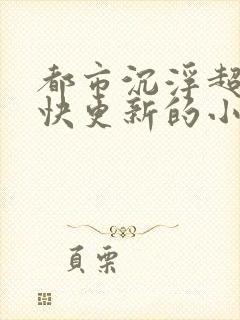 都市沉浮超
快更新的小
頁栗